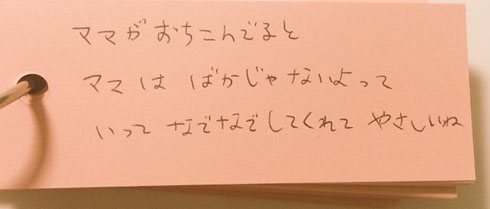 ママが おちこんでると
ママは ばかじゃないよって
いって なでなでしてくれて やさしいね